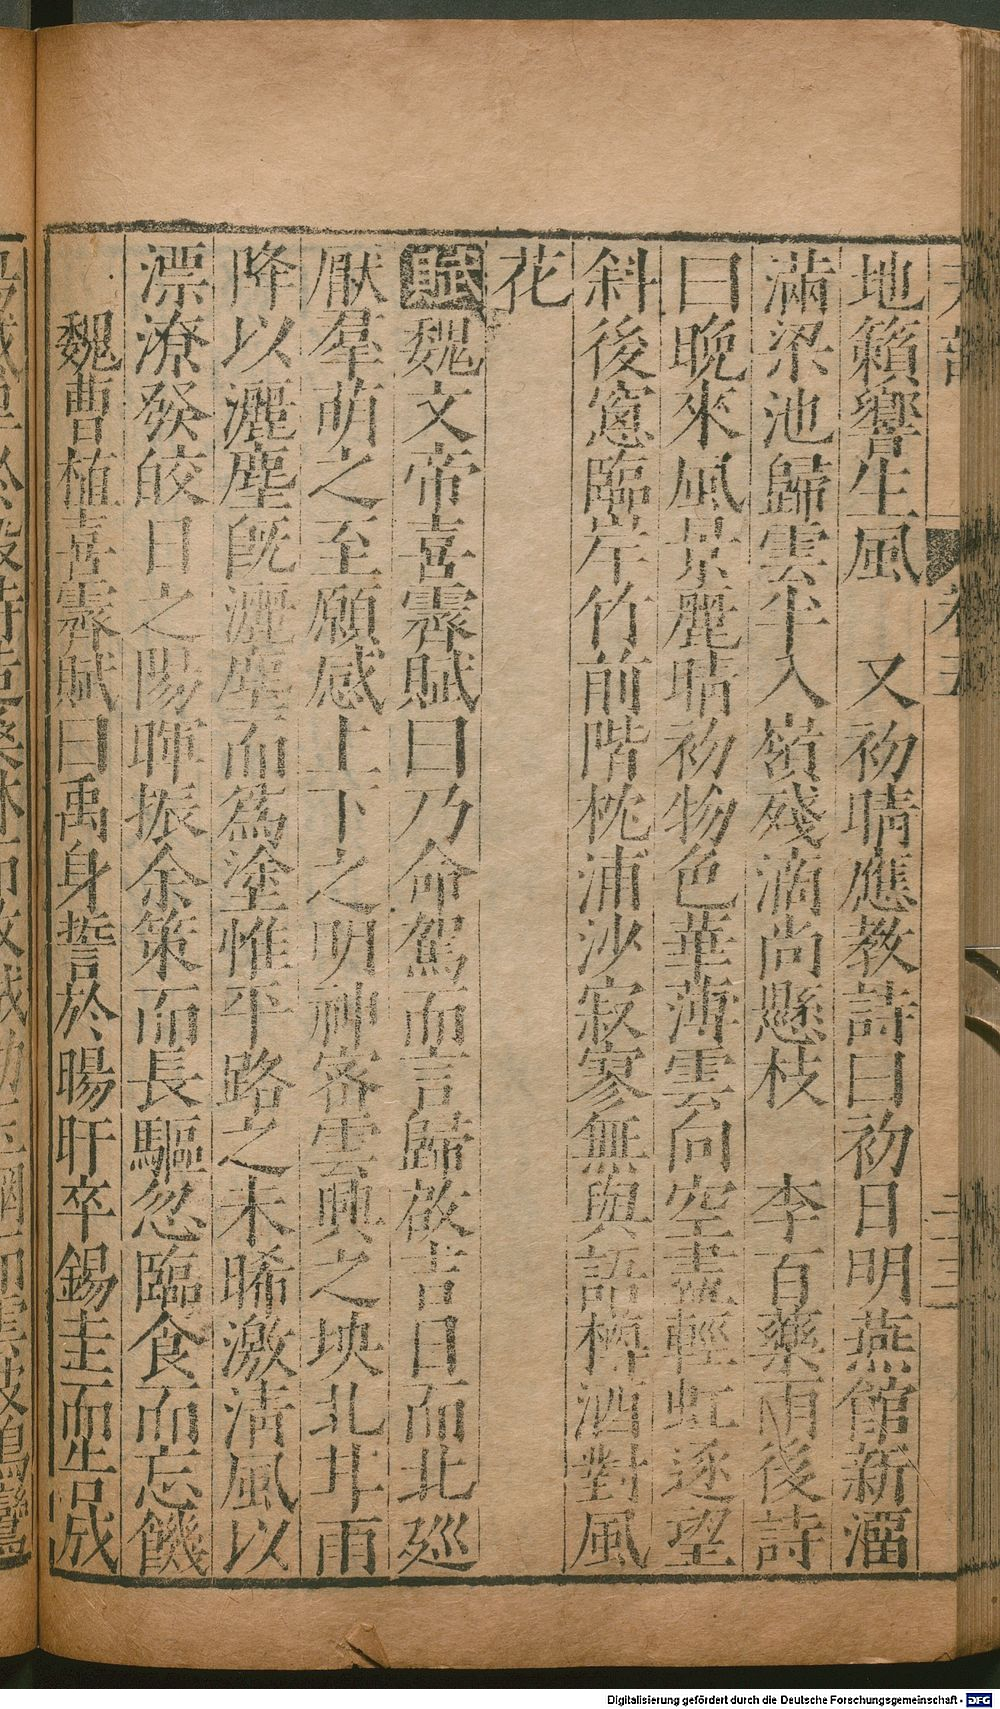 地籟響生風　又初晴應教詩曰初日明燕館新溜
滿梁池歸雲半入嶺殘滴尚懸枝　李百藥雨後詩
曰晚來風景麗晴初物色華薄雲向空盡輕虹逐望
斜後窓臨岸竹前階枕浦沙寂寥無與語樽酒對風
花
賦魏文帝喜霽賦曰乃命駕而言歸啟吉日而北廵
厭羣萌之至願感上下之明神密雲興之坱北非雨
降以灑塵旣灑塵而為塗惟平路之未晞激清風以
漂潦發皎日之陽暉振余策而長驅忽臨食而忘饑
魏曹植喜霽賦曰禹身誓於暘旴卒錫圭而告成
Digitalisierung gefördert durch die Deutsche Forschungsgemeinschaft - DFG